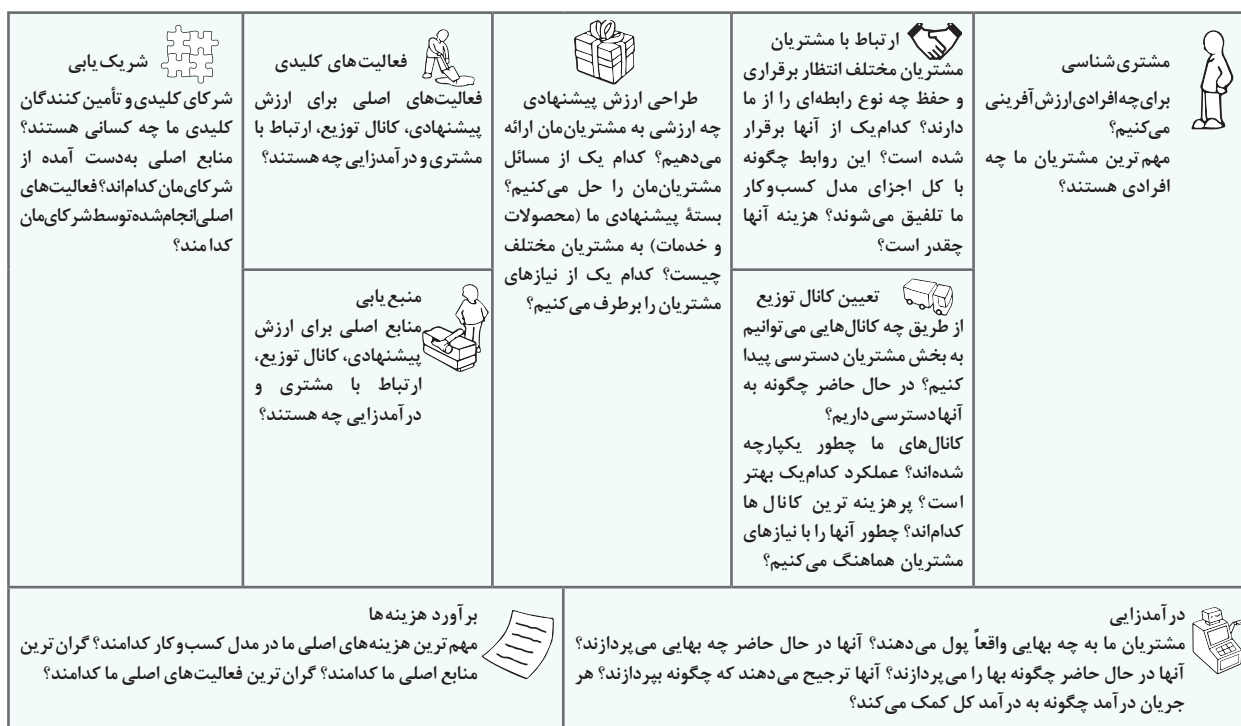 مشتری‌شناسی
برای چه افرادی ارزش آفرینی
می‌کنیم؟
مهم‌ترین مشتریان ما چه
افرادی هستند؟
ارتباط با مشتریان
مشتریان مختلف انتظار برقراری
و حفظ چه نوع رابطه‌ای را از ما
دارند؟ کدام‌یک از آنها برقرار
شده است؟ این روابط چگونه
با کل اجزای مدل کسب‌وکار
ما تلفیق می‌شوند؟ هزینه آنها
چقدر است؟
تعیین کانال توزیع
از طریق چه کانال‌هایی می‌توانیم
به بخش مشتریان دسترسی پیدا
کنیم؟ در حال حاضر چگونه به
آنها دسترسی داریم؟
کانال‌های ما چطور یکپارچه
شده‌اند؟ عملکرد کدام‌یک بهتر
است؟ پرهزینه ترین کانال ها
کدام‌اند؟ چطور آنها را با نیازهای
مشتریان هماهنگ می‌کنیم؟
طراحی ارزش پیشنهادی
چه ارزشی به مشتریان‌مان ارائه
می‌دهیم؟ کدام یک از مسائل
مشتریان‌مان را حل می‌کنیم؟
بستۀ پیشنهادی ما (محصولات
و خدمات) به مشتریان مختلف
چیست؟ کدام یک از نیازهای
مشتریان را برطرف می‌کنیم؟
فعالیت‌های کلیدی
فعالیت‌های اصلی برای ارزش
پیشنهادی، کانال توزیع، ارتباط با
مشتری و درآمدزایی چه هستند؟
منبع‌یابی
منابع اصلی برای ارزش
پیشنهادی، کانال توزیع،
ارتباط با مشتری و
درآمدزایی چه هستند؟
شریک‌یابی
شرکای کلیدی و تأمین کنندگان
کلیدی ما چه کسانی هستند؟
منابع اصلی به‌دست آمده از
شرکای‌مان کدام‌اند؟ فعالیت‌های
اصلی انجام‌شده توسط شرکای‌مان
کدامند؟
درآمدزایی
مشتریان ما به چه بهایی واقعاً پول می‌دهند؟ آنها در حال حاضر چه بهایی می‌پردازند؟
آنها در حال حاضر چگونه بها را می‌پردازند؟ آنها ترجیح می‌دهند که چگونه بپردازند؟ هر
جریان درآمد چگونه به درآمد کل کمک می‌کند؟
برآورد هزینه‌ها
مهم‌ترین هزینه‌های اصلی ما در مدل کسب‌وکار کدامند؟ گران‌ترین
منابع اصلی ما کدامند؟ گران‌ترین فعالیت‌های اصلی ما کدامند؟